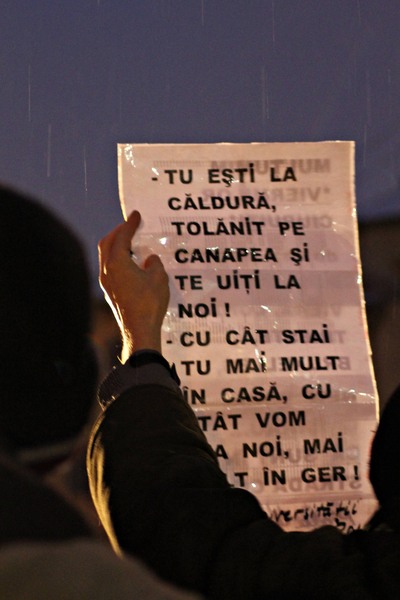 - TU EȘTI LA
CĂLDURĂ,
TOLĂNIT PE
CANAPEA ȘI
TE UIȚI LA
NOI !
- CU CÂT STAI
TU MAI MULT
ÎN CASĂ, CU
TÂT VOM
A NOI, MAI
LT ÎN GER !